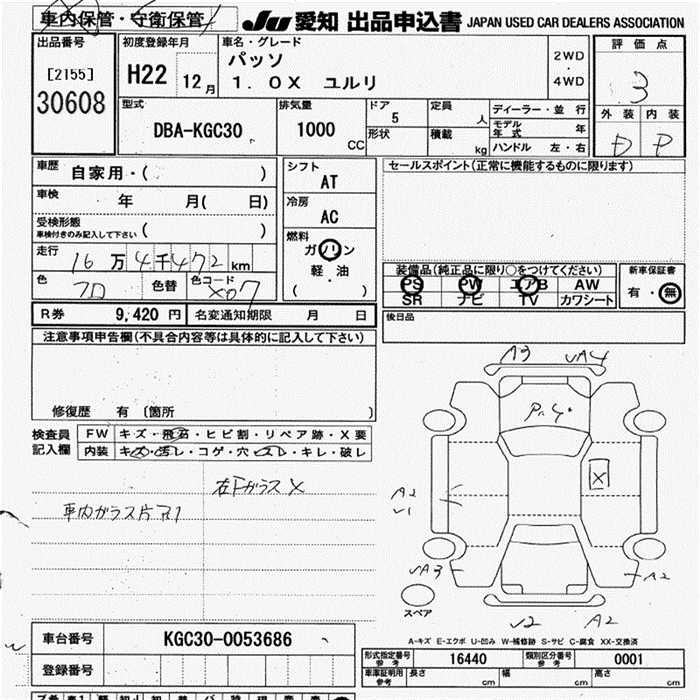 車内保管・守衛保管
JU 愛知 出品申込書 JAPAN USED CAR DEALERS ASSOCIATION
出品番号
[2155]
30608
初度登録年月
H22 12月
車名・グレード
パッソ
1．0X ユルリ
2WD
・
4WD
評価点
3
外装 内装
D D
型式
DBA-KGC30
排気量
1000
CC
ドア
5
形状
定員
人
積載
kg
ディーラー・並行
モデル年式 年
ハンドル 左・右
車歴 自家用・( )
車検 年 月( 日)
受検形態
車検付きのみ記入して下さい ( )
走行 16万4千472km
色 クロ 色替 色コード X07
シフト
AT
冷房
AC
燃料
ガソリン
軽・油
( ・ )
セールスポイント(正常に機能するものに限ります)
装備品(純正品に限り○をつけてください)
PS PW エアB AW
SR ナビ TV カワシート
新車保証書
有・無
R券 9,420円 名変通知期限 月 日
後日品
注意事項申告欄(不具合内容等は具体的に記入して下さい)
修復歴 有 〔箇所 〕
検査員記入欄
FW キズ・飛石・ヒビ割・リペア跡・X要
内装 キズ・汚レ・コゲ・穴・スレ・キレ・破レ
右Fガラス X
A3
A4
X
A2
A3
A2
A2
スペア
A-キズ E-エクボ U-凹み W-補修跡 S-サビ C-腐食 XX-交換済
車台番号 KGC30-0053686
登録番号
形式指定番号
参考
16440
類別区分番号
参考
0001
車庫証明用
参考
長さ cm 幅 cm 高さ cm